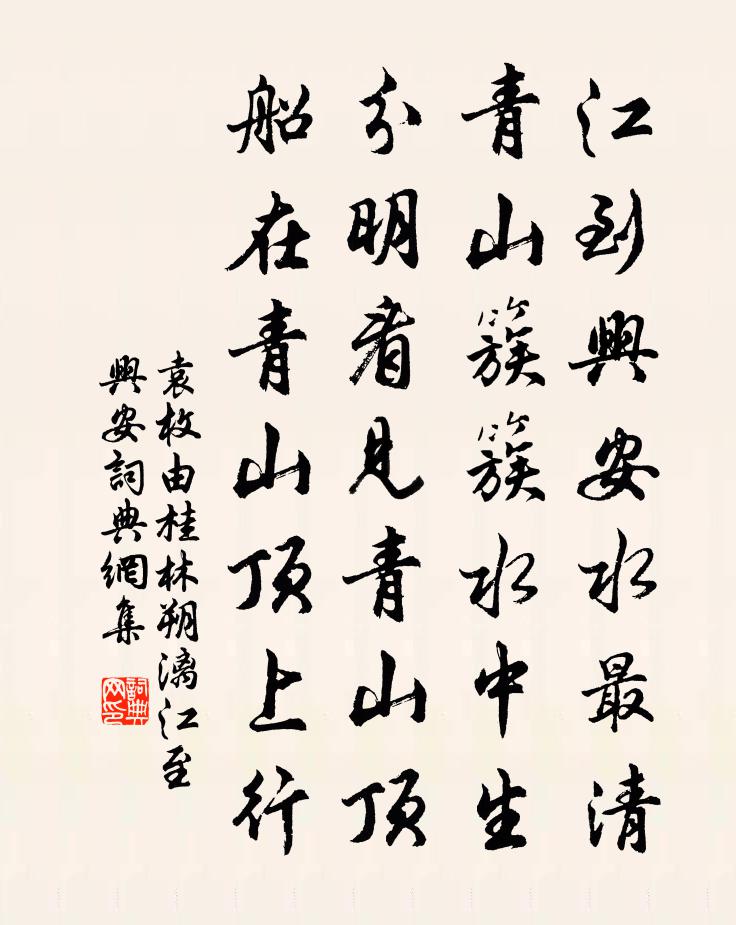 江到興安水最清
青山簇簇水中生
分明看見青山頂
船在青山頂上行
袁枚由桂林朔漓江至
興安詞典網集
詞典網印